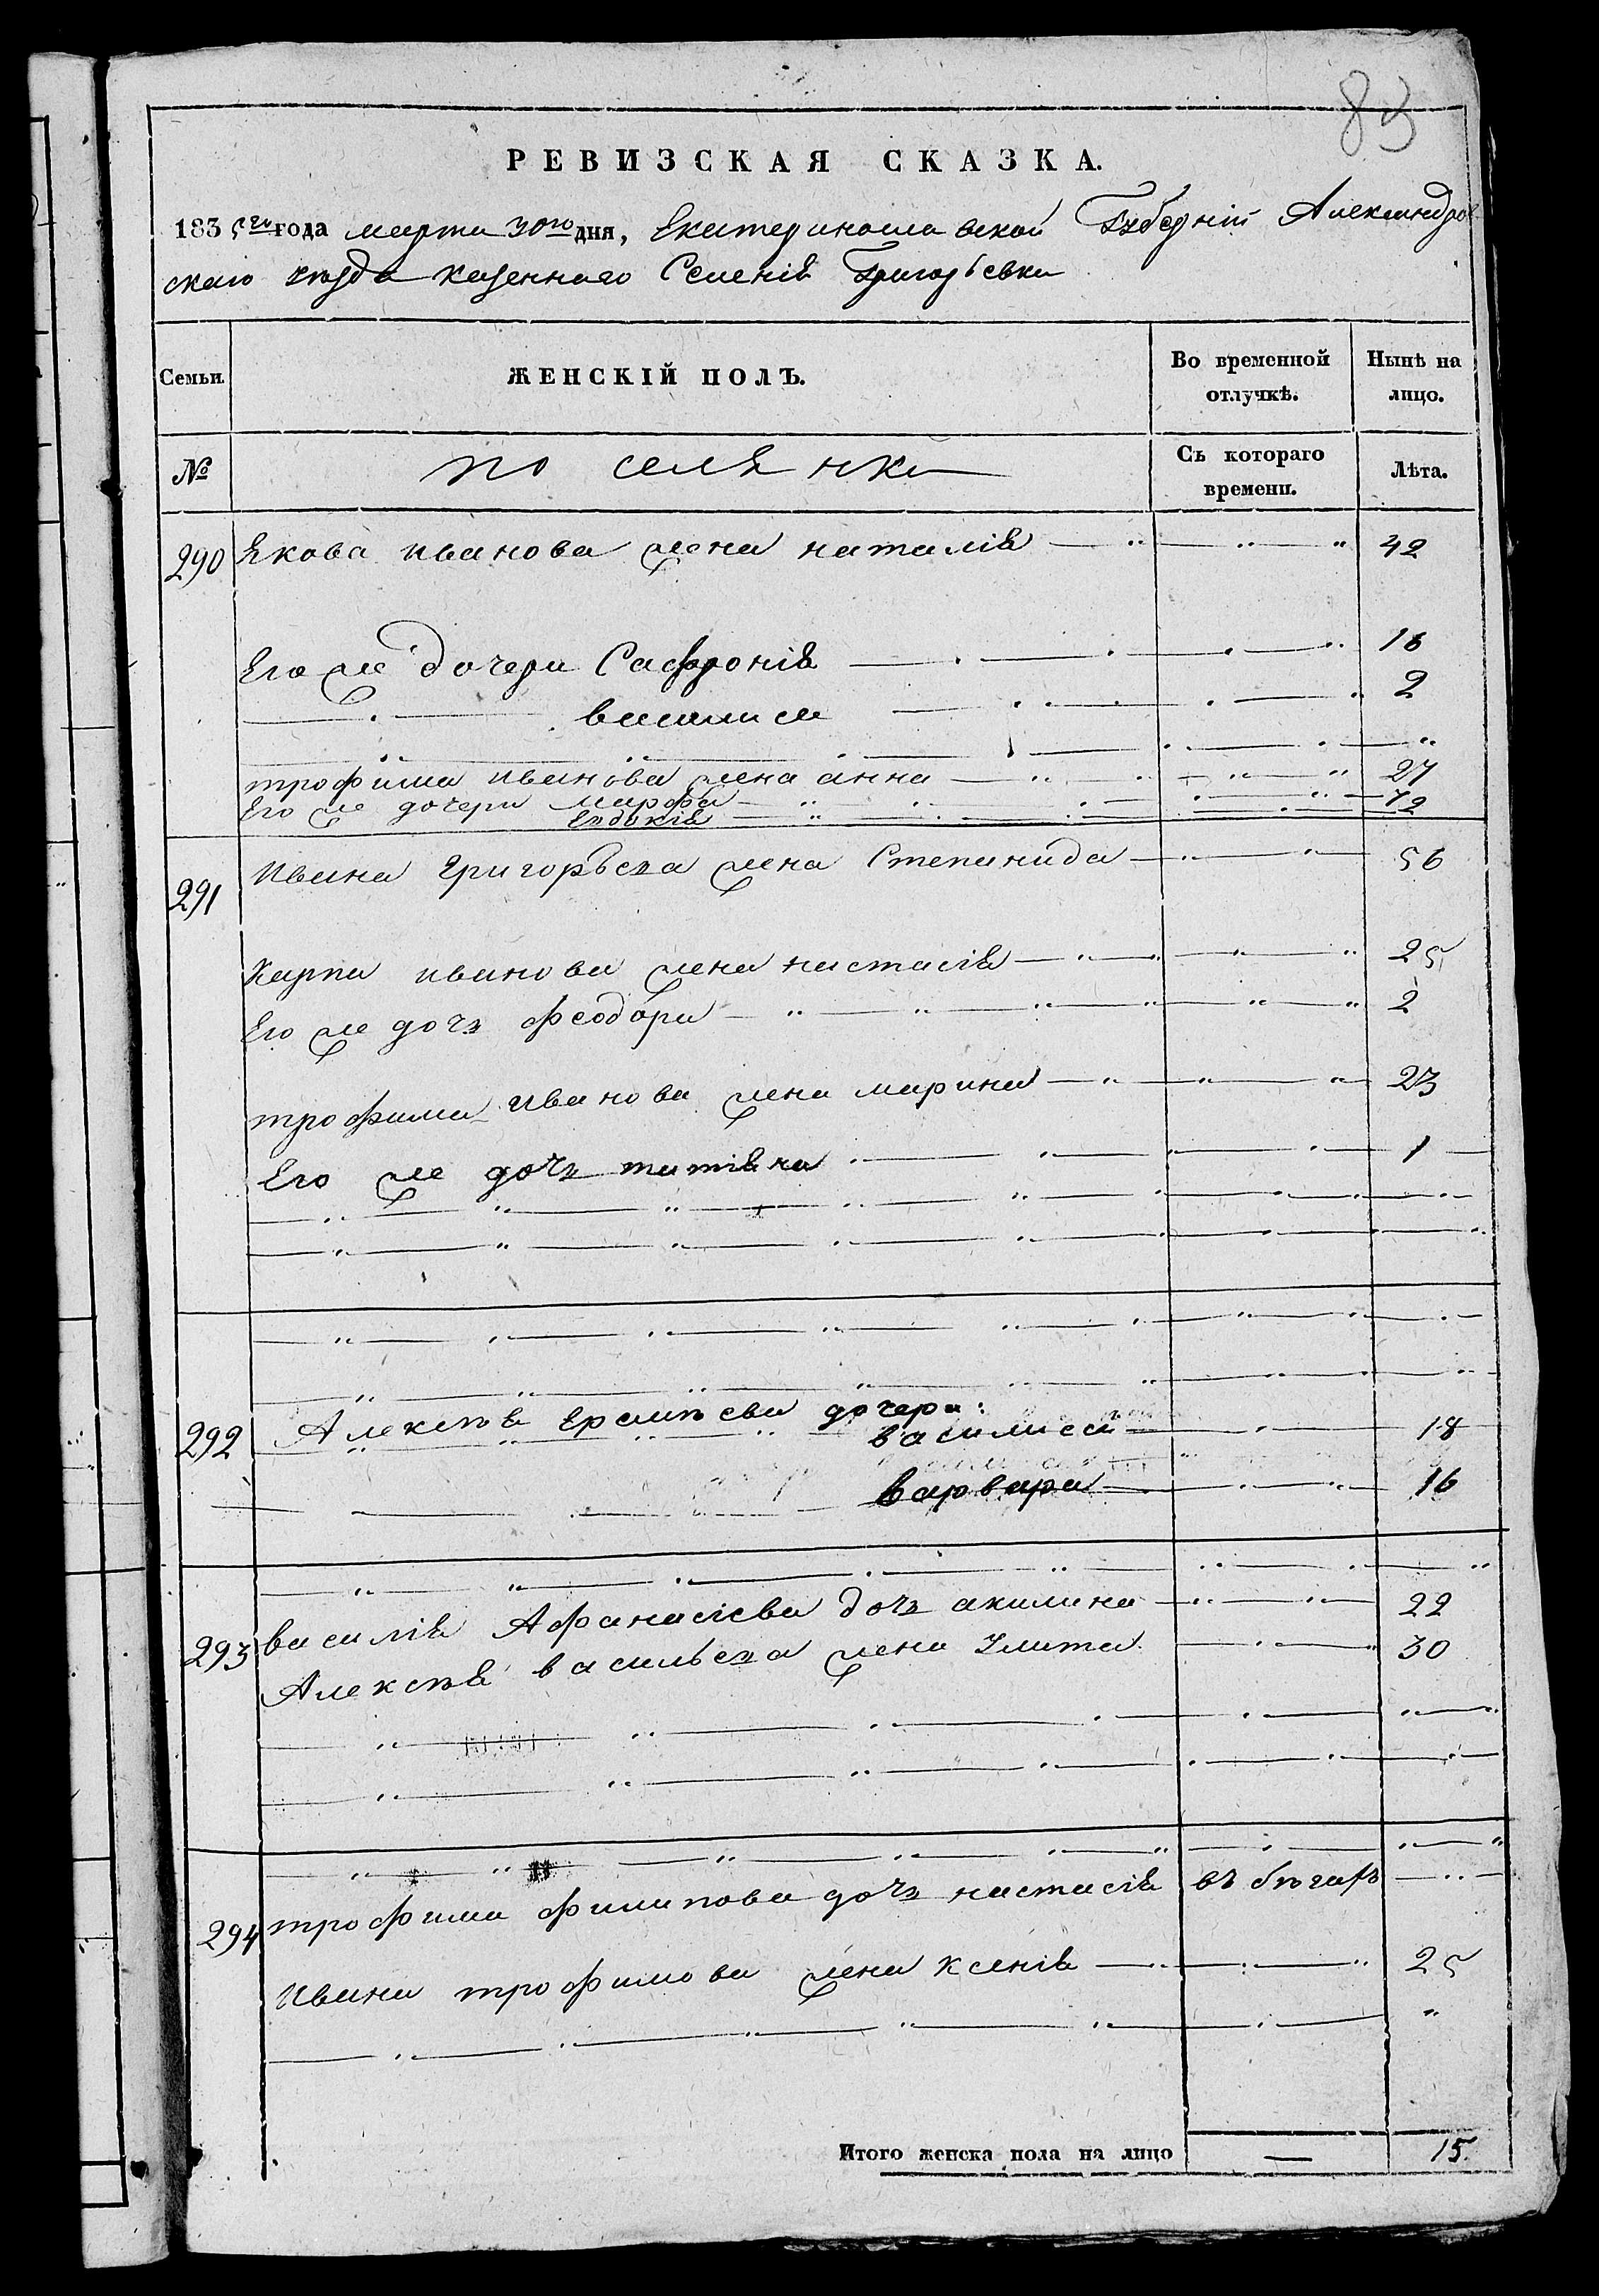 83
РЕВИЗСКАЯ СКАЗКА.
1835го года марта 30го дня, Екатериносла вской Губерніи Александров
скаго уѣзда казеннаго Селенія Григорьевки
Семьи.
ЖЕНСКІЙ ПОЛЪ.
Во временной отлучкѣ.
Нынѣ на лицо.
№
по селя нки
Съ котораго времени.
Лѣта.
290 Якова иванова жена наталія 42
Его же дочери Сафронія 18
василиса 2
трофима иванова жена анна 27
Его же дочери марфа 7
Евдокія 2
291 Ивана Григорьева жена Степанида 56
Карпа иванова жена настасія 25
Его же дочь феодора 2
трофима иванова жена марина 23
Его же дочь татіяна 1
292 Алексѣя Ермѣева дочери:
василиса 18
варвара 16
293 василія Афанасіева дочь акилина 22
Алексѣя васильева жена Улита 30
294 трофима филипова дочь настасія въ бѣгахъ
Ивана трофимова жена ксенія 25
Итого женска пола на лицо — 15.